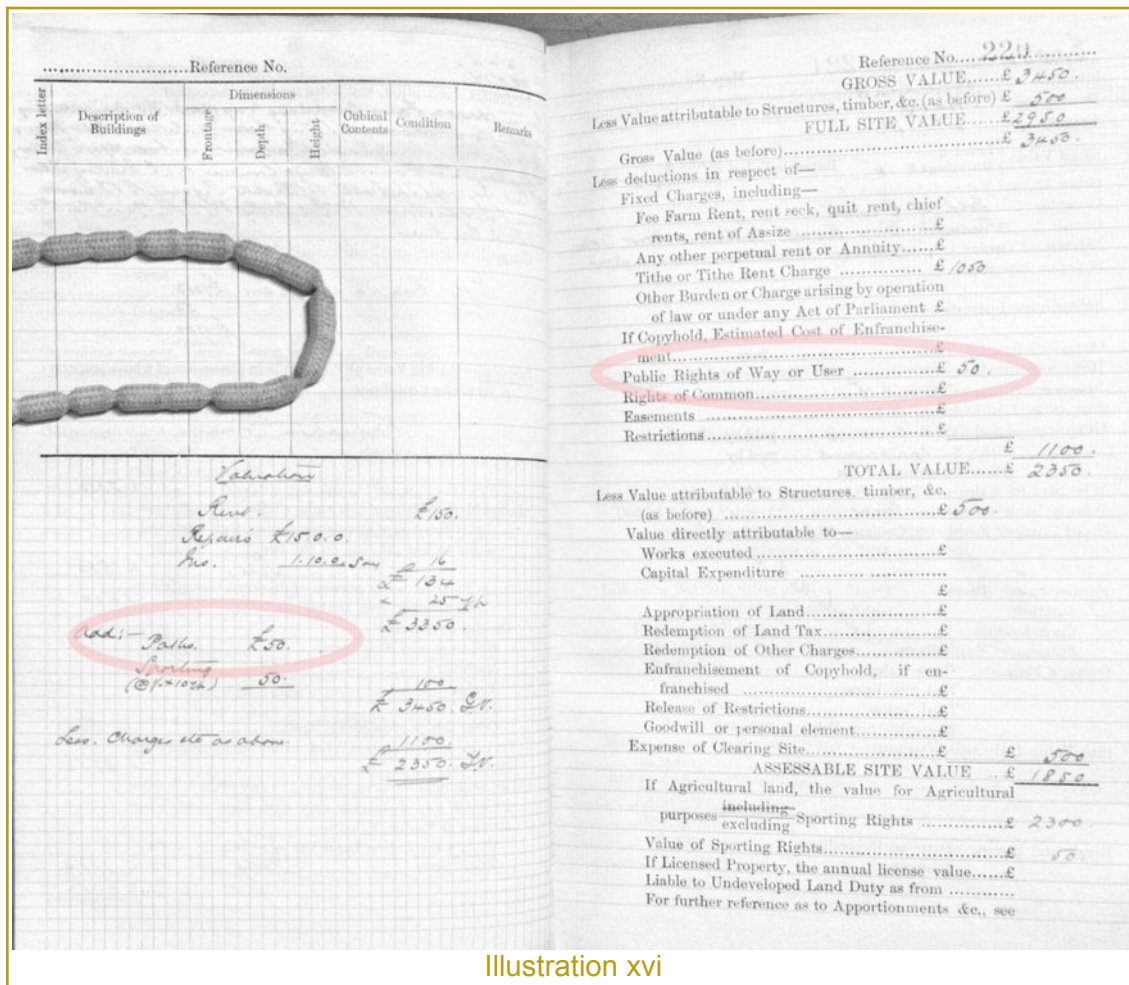 Reference No.
Index letter
Description of
Buildings
Dimensions
Frontage
Depth
Height
Cubical
Contents
Condition
Remarks
Valuation
Rent. £150.
Repairs £15.0.0.
Ins. 1.10.0 16
£ 134
25
£ 3350.
Add:- Paths. £50.
Sporting
50. 100
£ 3450. G.V.
Less. Charges etc as above 1100.
£ 2350. T.V.
Reference No.
GROSS VALUE......£ 3450.
Less Value attributable to Structures, timber, &c. (as before) £ 500
FULL SITE VALUE......£2950
Gross Value (as before)......£ 3450.
Less deductions in respect of—
Fixed Charges, including—
Fee Farm Rent, rent seck, quit rent, chief
rents, rent of Assize ......£
Any other perpetual rent or Annuity......£
Tithe or Tithe Rent Charge ......£ 1050
Other Burden or Charge arising by operation
of law or under any Act of Parliament £
If Copyhold, Estimated Cost of Enfranchise-
ment......£
Public Rights of Way or User ......£ 50.
Rights of Common......£
Easements ......£
Restrictions......£
£ 1100.
TOTAL VALUE......£ 2350.
Less Value attributable to Structures, timber, &c.
(as before) ......£ 500.
Value directly attributable to—
Works executed ......£
Capital Expenditure ......
£
Appropriation of Land......£
Redemption of Land Tax......£
Redemption of Other Charges......£
Enfranchisement of Copyhold, if en-
franchised ......£
Release of Restrictions......£
Goodwill or personal element......£
Expense of Clearing Site......£ £ 500
ASSESSABLE SITE VALUE ..£ 1850
If Agricultural land, the value for Agricultural
purposes including
excluding Sporting Rights ......£ 2300
Value of Sporting Rights......£ 50
If Licensed Property, the annual license value......£
Liable to Undeveloped Land Duty as from ......
For further reference as to Apportionments &c., see
Illustration xvi